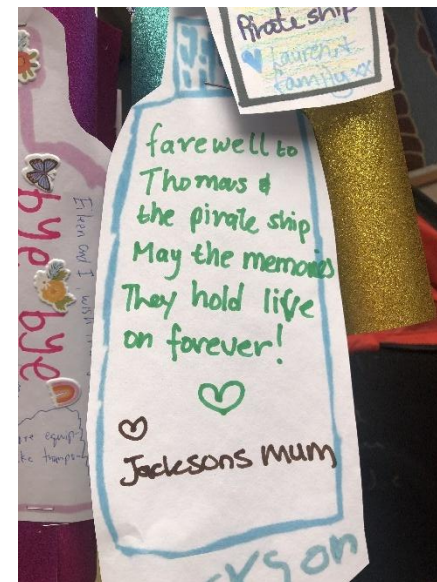 Pirate ship
Lauren &
family xx
farewell to
Thomas &
the pirate ship
May the memories
They hold live
on forever!
Jacksons mum
bye bye
Eileen and I, wish